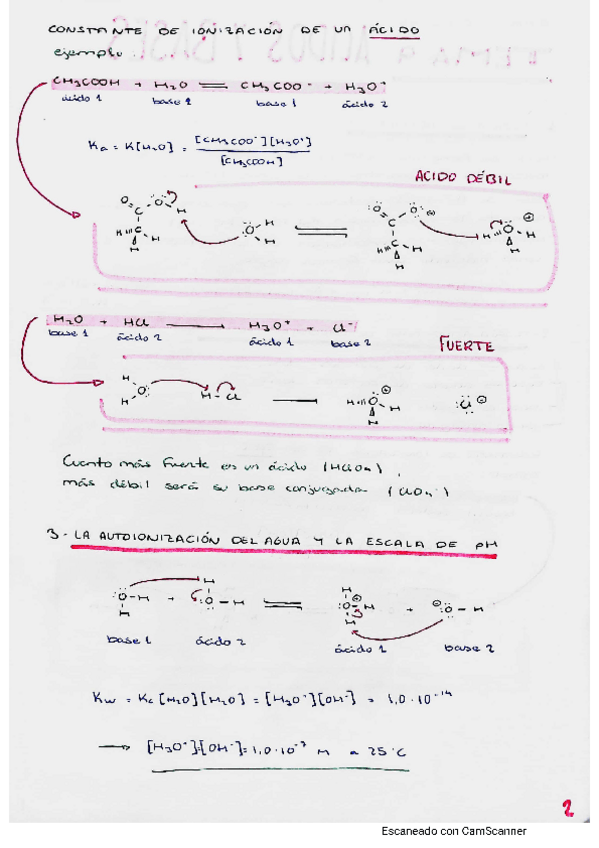 CONSTANTE DE IONIZACIÓN DE UN ÁCIDO
ejemplo.
CH3COOH + H2O ⇌ CH3COO⁻ + H3O⁺
ácido 1 base 2 base 1 ácido 2
Ka = K[H2O] = [CH3COO⁻][H3O⁺] / [CH3COOH]
ACIDO DÉBIL
H2O + HCl → H3O⁺ + Cl⁻
base 1 ácido 2 ácido 1 base 2
FUERTE
Cuanto más fuerte es un ácido (HClO4),
más débil será su base conjugada (ClO4⁻)
3- LA AUTOIONIZACIÓN DEL AGUA Y LA ESCALA DE pH
base 1 ácido 2 ácido 1 base 2
Kw = Kc [H2O][H2O] = [H3O⁺][OH⁻] = 1,0·10⁻¹⁴
→ [H3O⁺]=[OH⁻]=1,0·10⁻⁷ M a 25°C
2
Escaneado con CamScanner